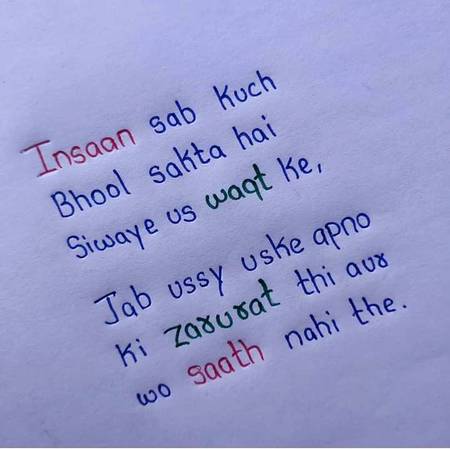 Insaan sab Kuch
Bhool sakta hai
Siwaye us waqt ke,
Jab ussy uske apno
ki zarurat thi aur
wo saath nahi the.